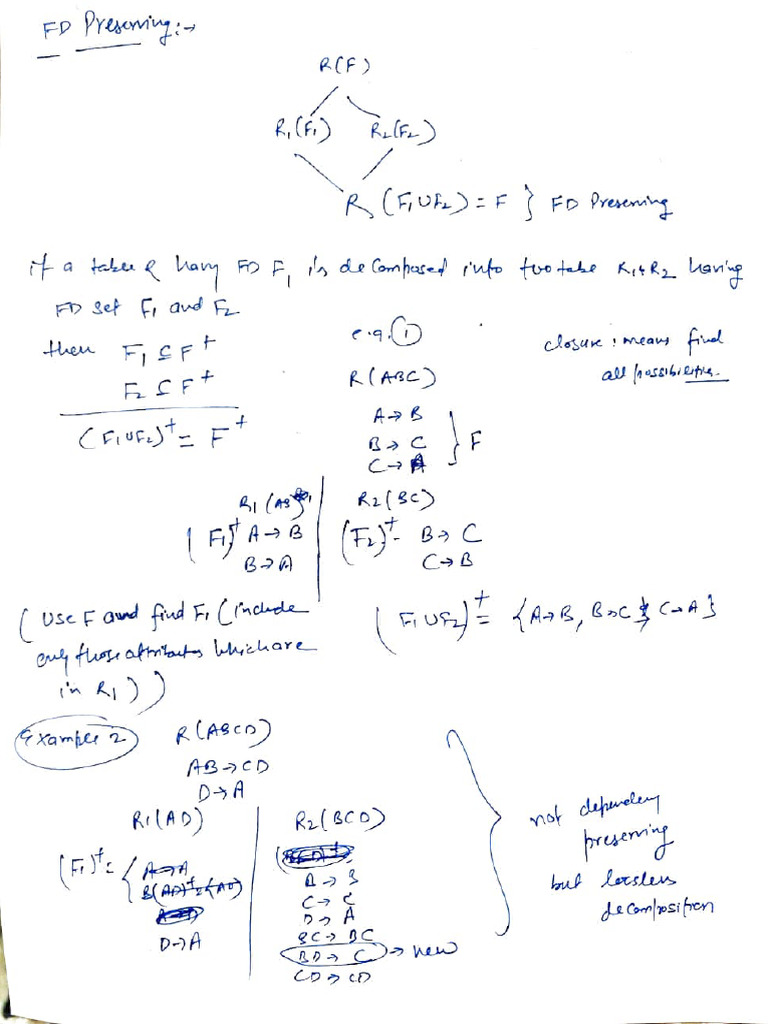 FD Preserving:→
R(F)
R1(F1) R2(F2)
R (F1∪F2) = F } FD Preserving
if a table R having FD F, is decomposed into two table R1 & R2 having
FD set F1 and F2
then F1 ⊆ F+
F2 ⊆ F+
(F1∪F2)+ = F+
e.g. ①
R(ABC)
A→B
B→C
C→A
} F
closure : means find
all possibilities.
R1(AB)
(F1)+ A→B
B→A
R2(BC)
(F2)+ - B→C
C→B
(use F and find F1 (include
only those attributes which are
in R1))
(F1∪F2)+ = {A→B, B→C, C→A}
Example 2
R(ABCD)
AB→CD
D→A
R1(AD)
(F1)+ = { A→A
(AD)+ = (AD)
D→A
R2(BCD)
B→B
C→C
D→A
BC→BC
BD→C → new
CD→CD
not dependency
preserving
but lossless
decomposition